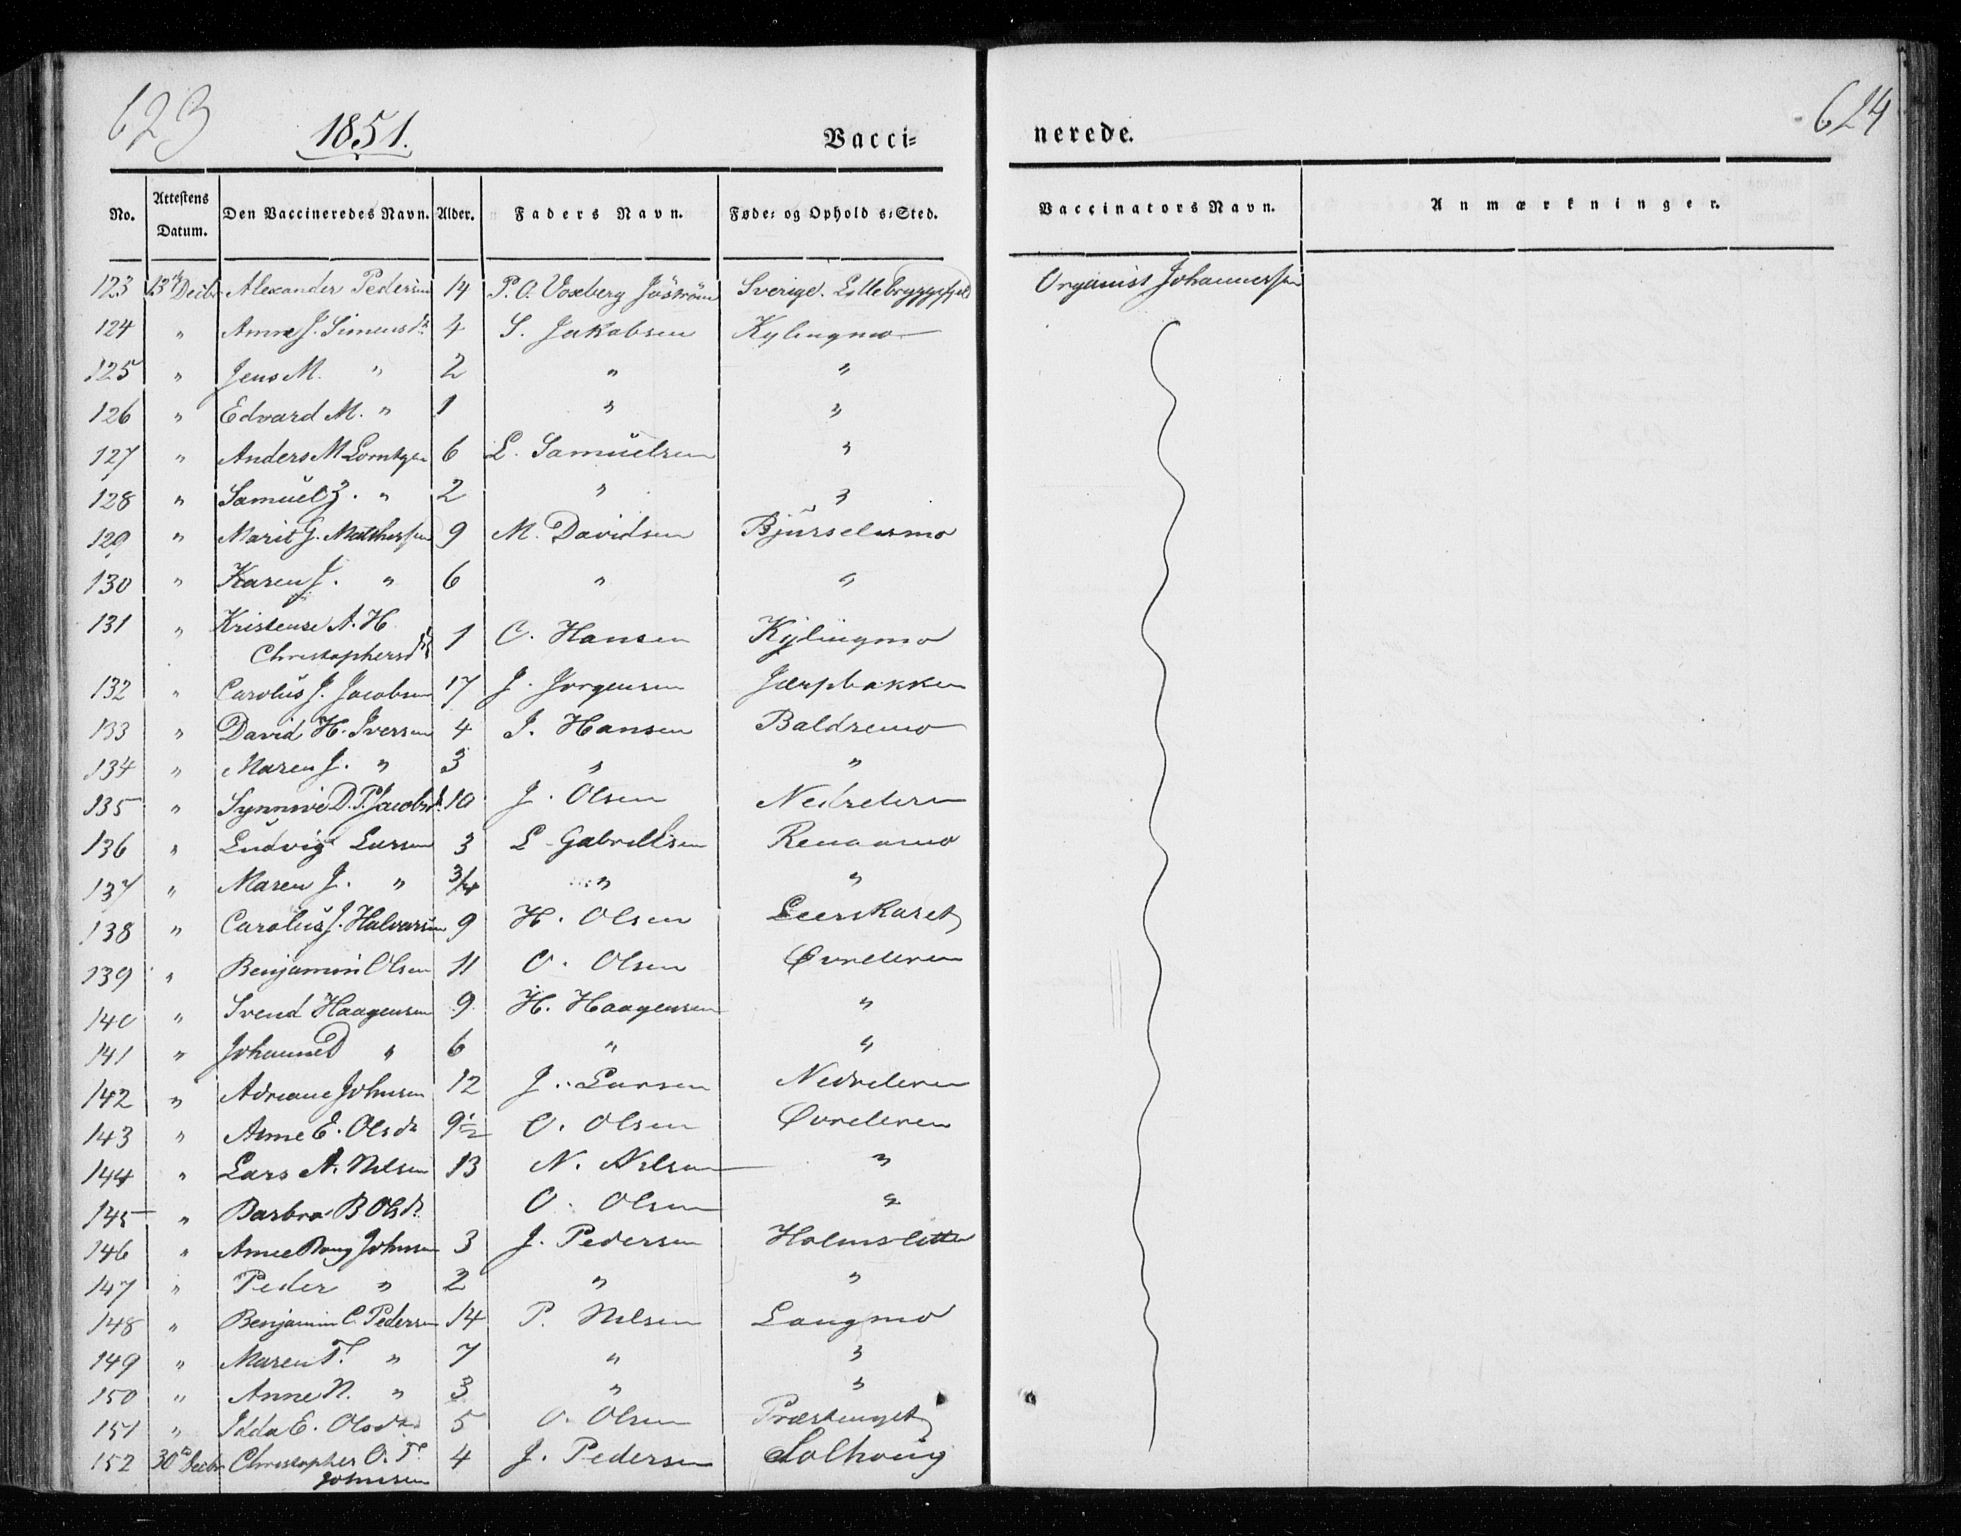 623
1851.
Vacci=
nerede.
624
No. Attestens Datum. Den Vaccineredes Navn. Alder. Faders Navn. Føde: og Ophold s:Sted. Vaccinators Navn. Anmærkninger.
123 13de Decbr Alexander Pedersen 14 P. O. Voxberg Sverige. Organist Johannessen
124 " Anne J. Simensdr 4 S. Jakobsen Kylingmo
125 " Jens M. " 2 " "
126 " Edvard M. " 1 " "
127 " Anders M 6 L. Samuelsen "
128 " Samuel Z. " 2 " "
129 " Marit G. Mathissen 9 M. Davidsen Bjurselvmo
130 " Karen J. " 6 " "
131 " Kristense A. H. Christophersdtr 1 C. Hansen Kylingmo
132 " Carolus J. Jacobsen 17 J. Jørgensen Jærpbakken
133 " David H. Iversen 4 I. Hansen Baldremo
134 " Maren J. " 3 " "
135 " Synnive D. P. Jacobsd. 10 J. Olsen Nedreleren
136 " Ludvig Larsen 3 L. Gabrielsen Renaamo
137 " Maren J. " 3/4 " "
138 " Carolus J. Halvorsen 9 H. Olsen Leerskaret
139 " Benjamin Olsen 11 O. Olsen Øvreleren
140 " Svend Haagensen 9 H. Haagensen "
141 " Johannes " 6 " "
142 " Adriane Johnsen 12 J. Larsen Nedreleren
143 " Anne E. Olsdr 9½ O. Olsen Øvreleren
144 " Lars A. Nilsen 13 N. Nilsen "
145 " Barbra B Olsdr O. Olsen "
146 " Anne Johnsen 3 J. Pedersen Holmslette
147 " Peder " 2 " "
148 " Benjamin C. Pedersen 14 P. Nilsen Langmo
149 " Maren T. " 7 " "
150 " Anne N. " 3 " "
151 " Idda E. Olsdr 5 O. Olsen Præstenget
152 30te Decbr Christopher O. T. Johnsen 4 J. Pedersen Solhoug